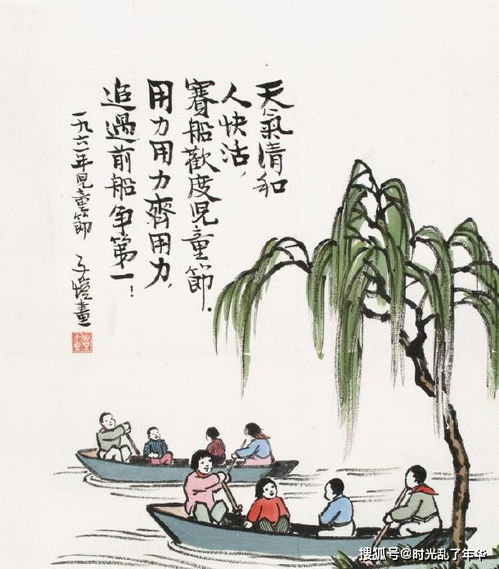 天氣清和
人快活，
賽船歡度児童節．
用力用力齊用力，
追過前船争第一！
一九六一年児童節
子愷畫
搜狐号@时光乱了年华